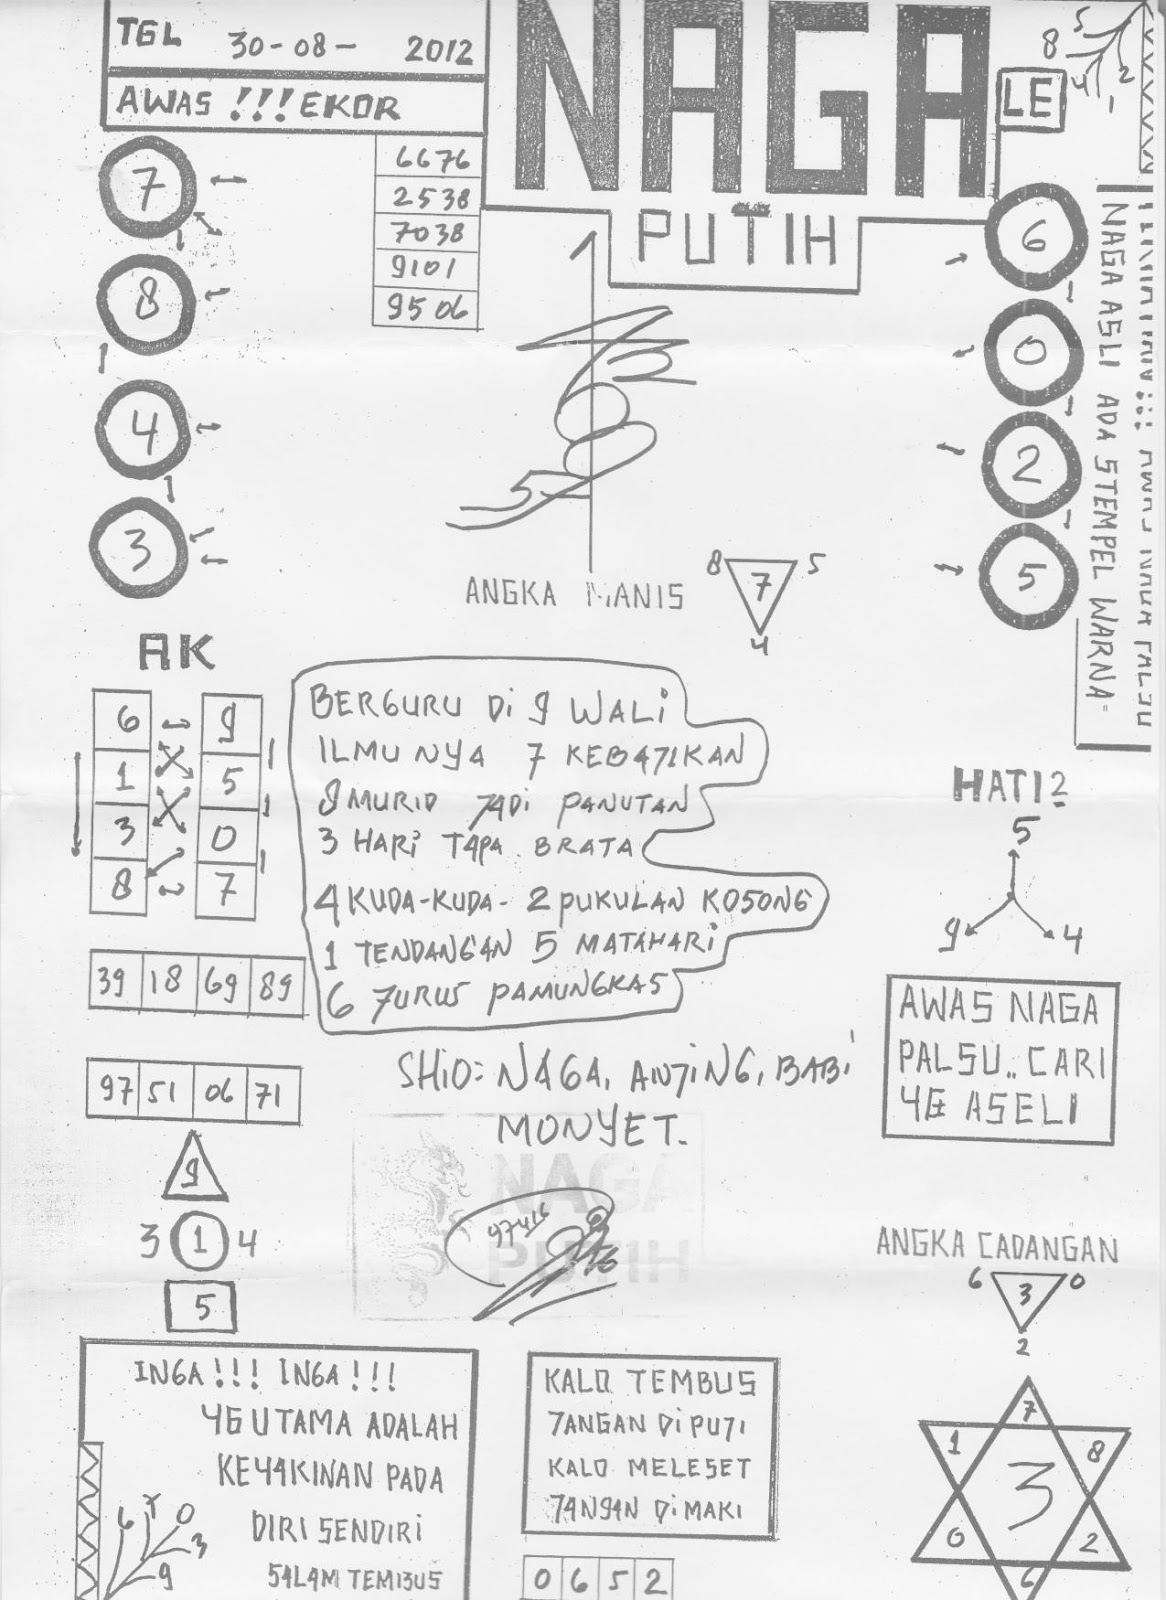 TGL 30-08- 2012
AWAS !!! EKOR
NAGA
PUTIH
LE
8 5 4 1 2
7
8
4
3
6676
2538
7038
9101
9506
6
0
2
5
NAGA ASLI ADA STEMPEL WARNA=
ANGKA MANIS
8 7 5
4
AK
6 9
1 5
3 0
8 7
39 18 69 89
97 51 06 71
9
3 1 4
5
BERGURU Di 9 WALi
ILMU NYA 7 KEBA71KAN
9 MURID 7ADI PANUTAN
3 HARi TAPA BRATA
4 KUDA-KUDA- 2 PUKULAN KO5ONG
1 TENDANGAN 5 MATAHARi
6 7URUS PAMUNGKAS
SHiO: NAGA, AN7iNG, BABi
MONYET.
NAGA
PUTIH
97416
HATI2
5
9 4
AWAS NAGA
PALSU.. CARI
4G ASELI
ANGKA CADANGAN
6 3 0
2
7
1 8
3
0 2
6
IN6A !!! IN6A !!!
4G UTAMA ADALAH
KE44KINAN PADA
DIRI SENDIRI
54L4M TEMBUS
6 7 0 3 9
KALO TEMBUS
7ANGAN Di PU7I
KALO MELESET
74NG4N DI MAKI
0 6 5 2